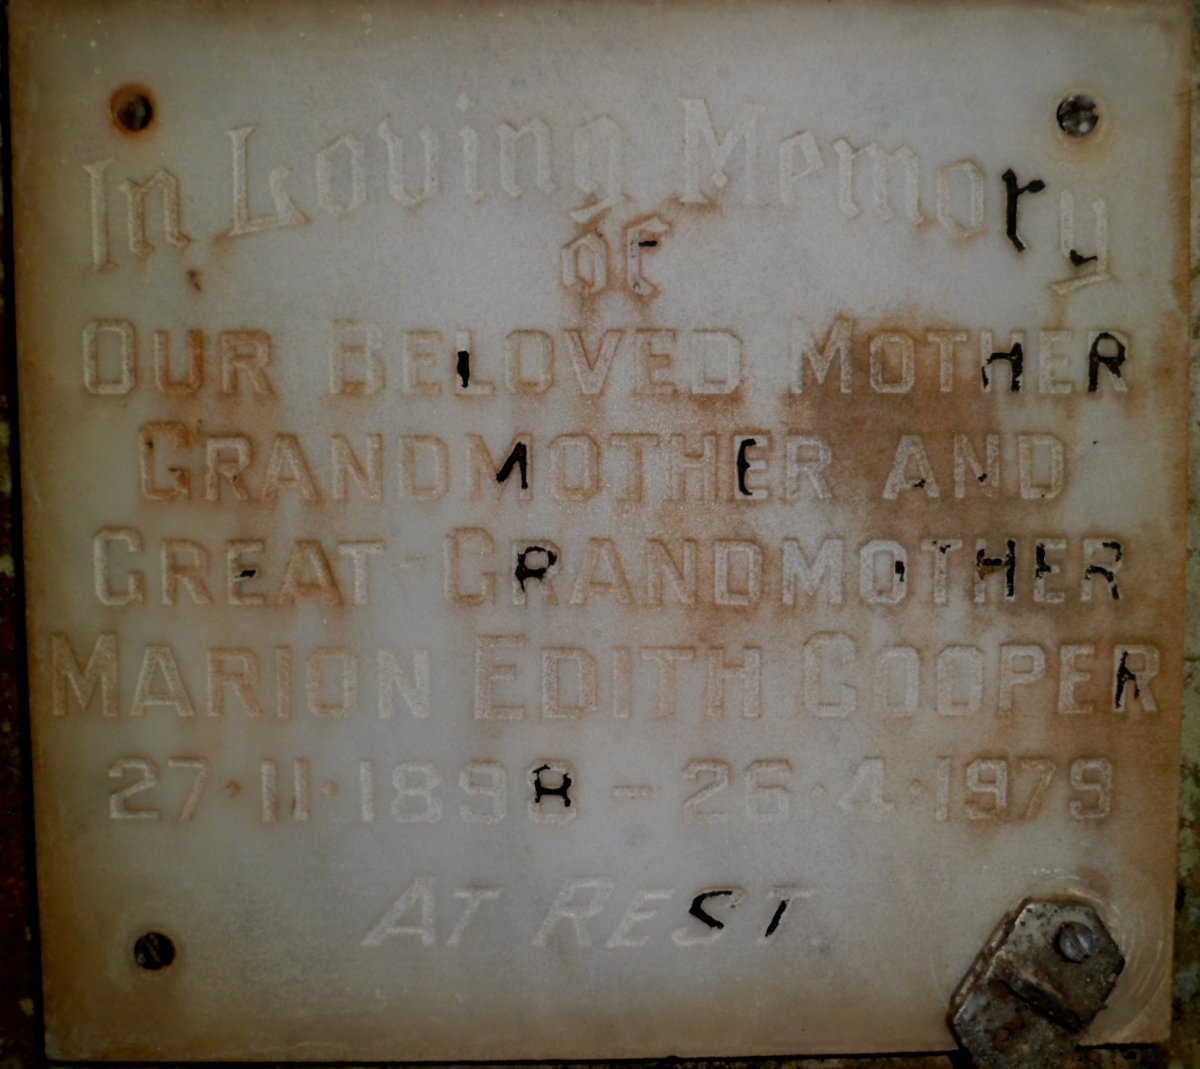 In Loving Memory
of
OUR BELOVED MOTHER
GRANDMOTHER AND
GREAT-GRANDMOTHER
MARION EDITH COOPER
27·11·1898 - 26·4·1979
AT REST.